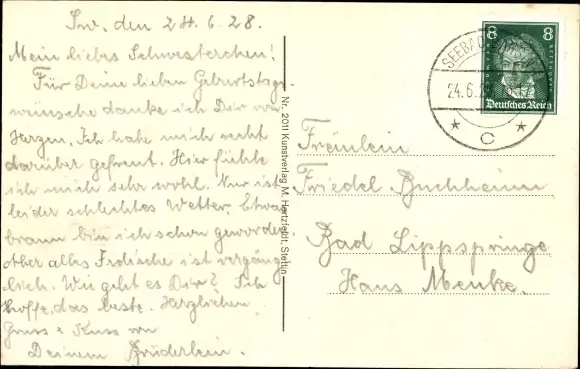 Sw. den 24.6.28.
Mein liebes Schwesterchen!
Für Deine lieben Geburtstags-
wünsche danke ich Dir von
Herzen. Ich habe mich recht
darüber gefreut. Hier fühle
ich mich sehr wohl. Nur ist
leider schlechtes Wetter. Etwas
braun bin ich schon geworden
aber alles Irdische ist vergäng-
lich. Wie geht es Dir? Ich
hoffe, das beste. Herzlichen
Gruss & Kuss von
Deinem Brüderlein.
Nr. 2011 Kunstverlag M. Hertzfeldt, Stettin
SEEBAD
24.6.
* C *
8 8
BEETHOVEN
Deutsches Reich
Fräulein
Friedel Buchheim
Bad Lippspringe
Haus Menke.